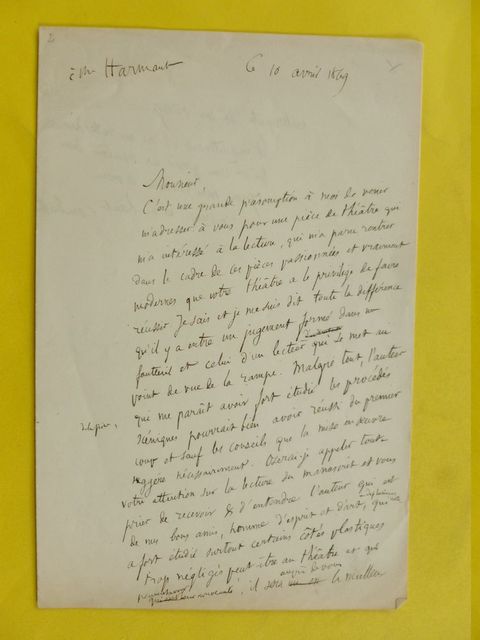 2
à Mr Harmant
Ce 10 avril 1869
Monsieur,
C'est une grande présomption à moi de venir
m'adresser à vous pour une pièce de théâtre qui
m'a intéressé à la lecture, qui m'a paru rentrer
dans le cadre de ces pièces passionnées et vraiment
modernes que votre théâtre a le privilège de faire
réussir. Je sais et je me suis dit toute la différence
qu'il y a entre un jugement formé dans un
fauteuil et celui d'un lecteur qui se met au
point de vue de la rampe. Malgré tout, l'auteur
qui me paraît avoir fort étudié les procédés
scéniques pourrait bien avoir réussi du premier
coup et sauf les conseils que la mise en œuvre
suggère nécessairement. Oserai-je appeler toute
votre attention sur la lecture du manuscrit et vous
prier de recevoir & d'entendre l'auteur qui est
de mes bons amis, homme d'esprit et d'art, qui
a fort étudié surtout certains côtés plastiques
trop négligés peut être au théâtre et que
, il sera auprès de vous le meilleur